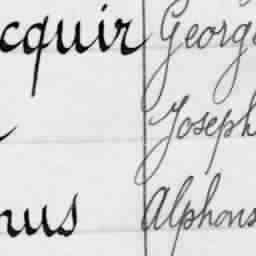 cquir Georg
Joseph
nus Alphons